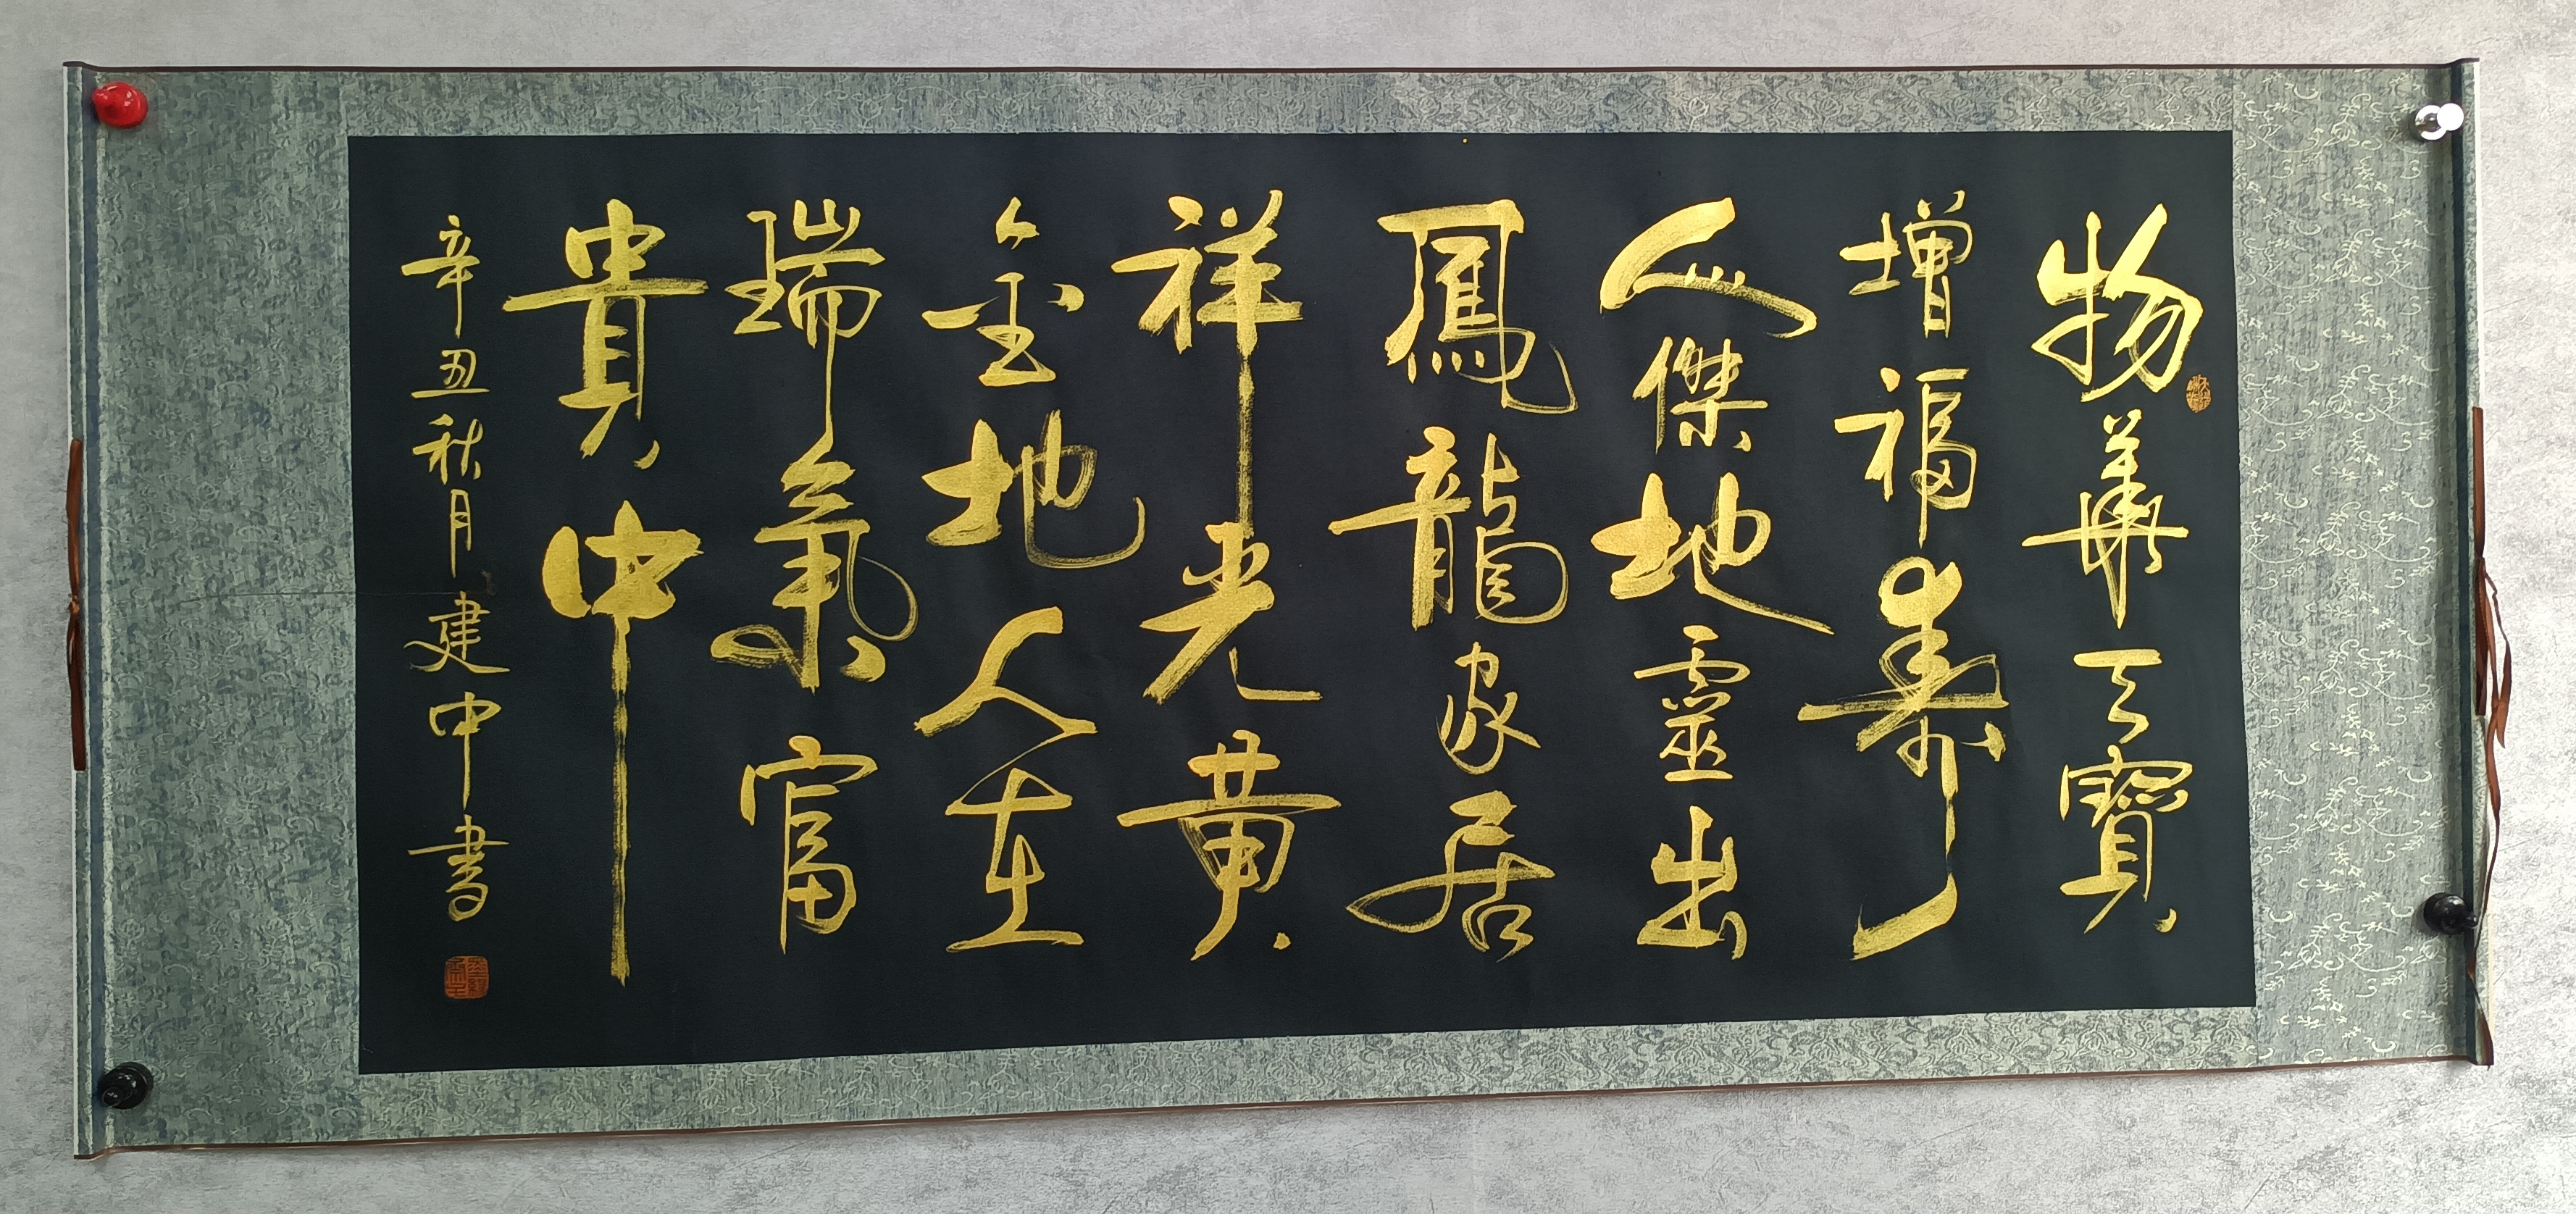 物華天寶
增福壽
人傑地靈出
鳳龍家居
祥光黄
金地人在
瑞氣富
貴中
辛丑秋月建中書